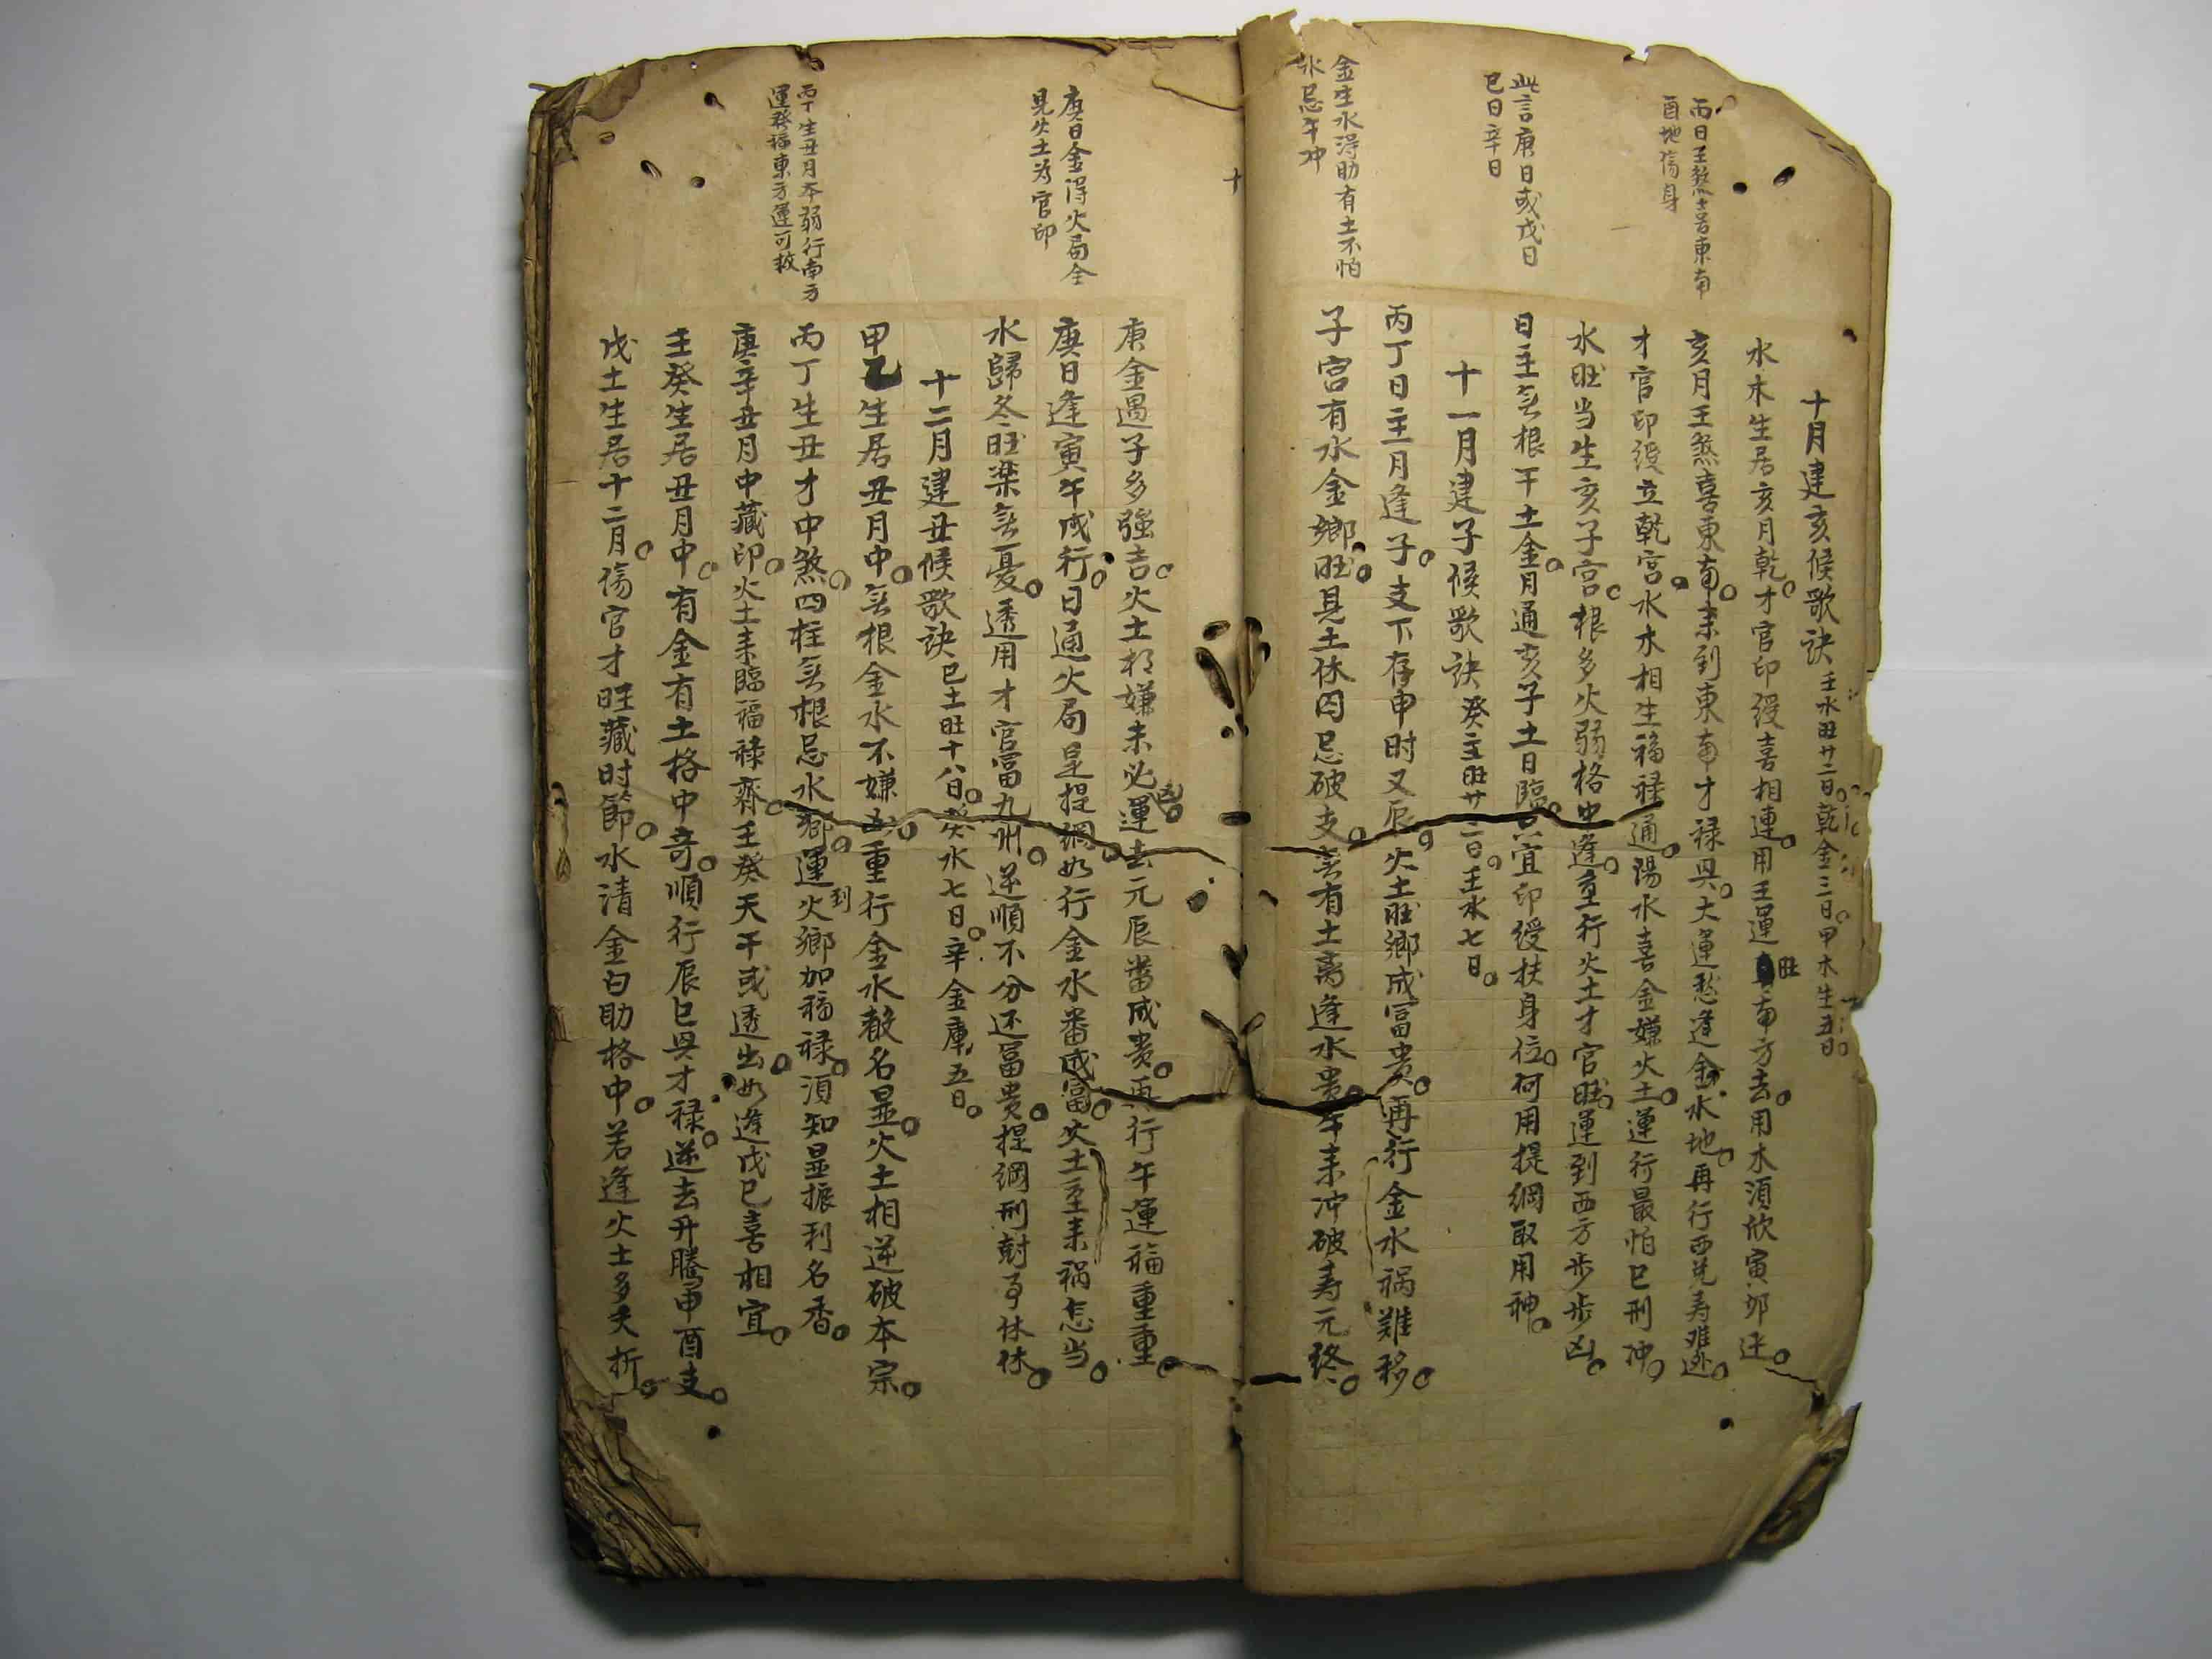 丙日壬煞喜東南
酉地傷身
此言庚日或戊日
巳日辛日
金生水得助有土不怕
水忌午冲
十月建亥候歌訣 壬水旺廿二日。乾金三日。甲木生五日。
水木生居亥月乾。才官印綬喜相連。用壬運旺南方去。用木須欣寅卯迁。
亥月壬煞喜東南。耒到東南才禄具。大運愁逢金水地。再行西兑寿难逃。
才官印綬立乾宮。水木相生福禄通。陽水喜金嫌火土。運行最怕巳刑冲。
水旺当生亥子宮。根多火弱格中逢。重行火土才官旺。運到西方步步凶。
日主無根干土金。月通亥子土日臨。宜印綬扶身位。何用提綱取用神。
十一月建子候歌訣 癸主旺廿二日。壬水七日。
丙丁日主月逢子。支下存申时又辰。火土旺鄉成富贵。再行金水禍难移。
子宮有水金鄉旺。見土休囚忌破支。無有土离逢水贵。午耒冲破寿元终。
十
庚日金得火局全
見火土为官印
丙丁生丑月本弱行南方
運發福東方運可救
庚金遇子多強吉。火土相嫌未必凶。運去元辰當成贵。再行午運福重重。
庚日逢寅午戌行。日通火局是提綱。如行金水番成富。火土至耒禍怎当。
水歸冬旺楽無憂。透用才官富九州。逆順不分还富贵。提綱刑尅事休休。
十二月建丑候歌訣 巳土旺十八日。癸水七日。辛金庫五日。
甲乙生居丑月中。無根金水不嫌凶。重行金水教名显。火土相逆破本宗。
丙丁生丑才中煞。四柱無根忌水鄉。運到火鄉加福禄。須知显振利名香。
庚辛丑月中藏印。火土耒臨福禄齊。壬癸天干或透出。如逢戊巳喜相宜。
壬癸生居丑月中。有金有土格中奇。順行辰巳具才禄。逆去升騰申酉支。
戊土生居十二月。傷官才旺藏时節。水清金白助格中。若逢火土多夭折。